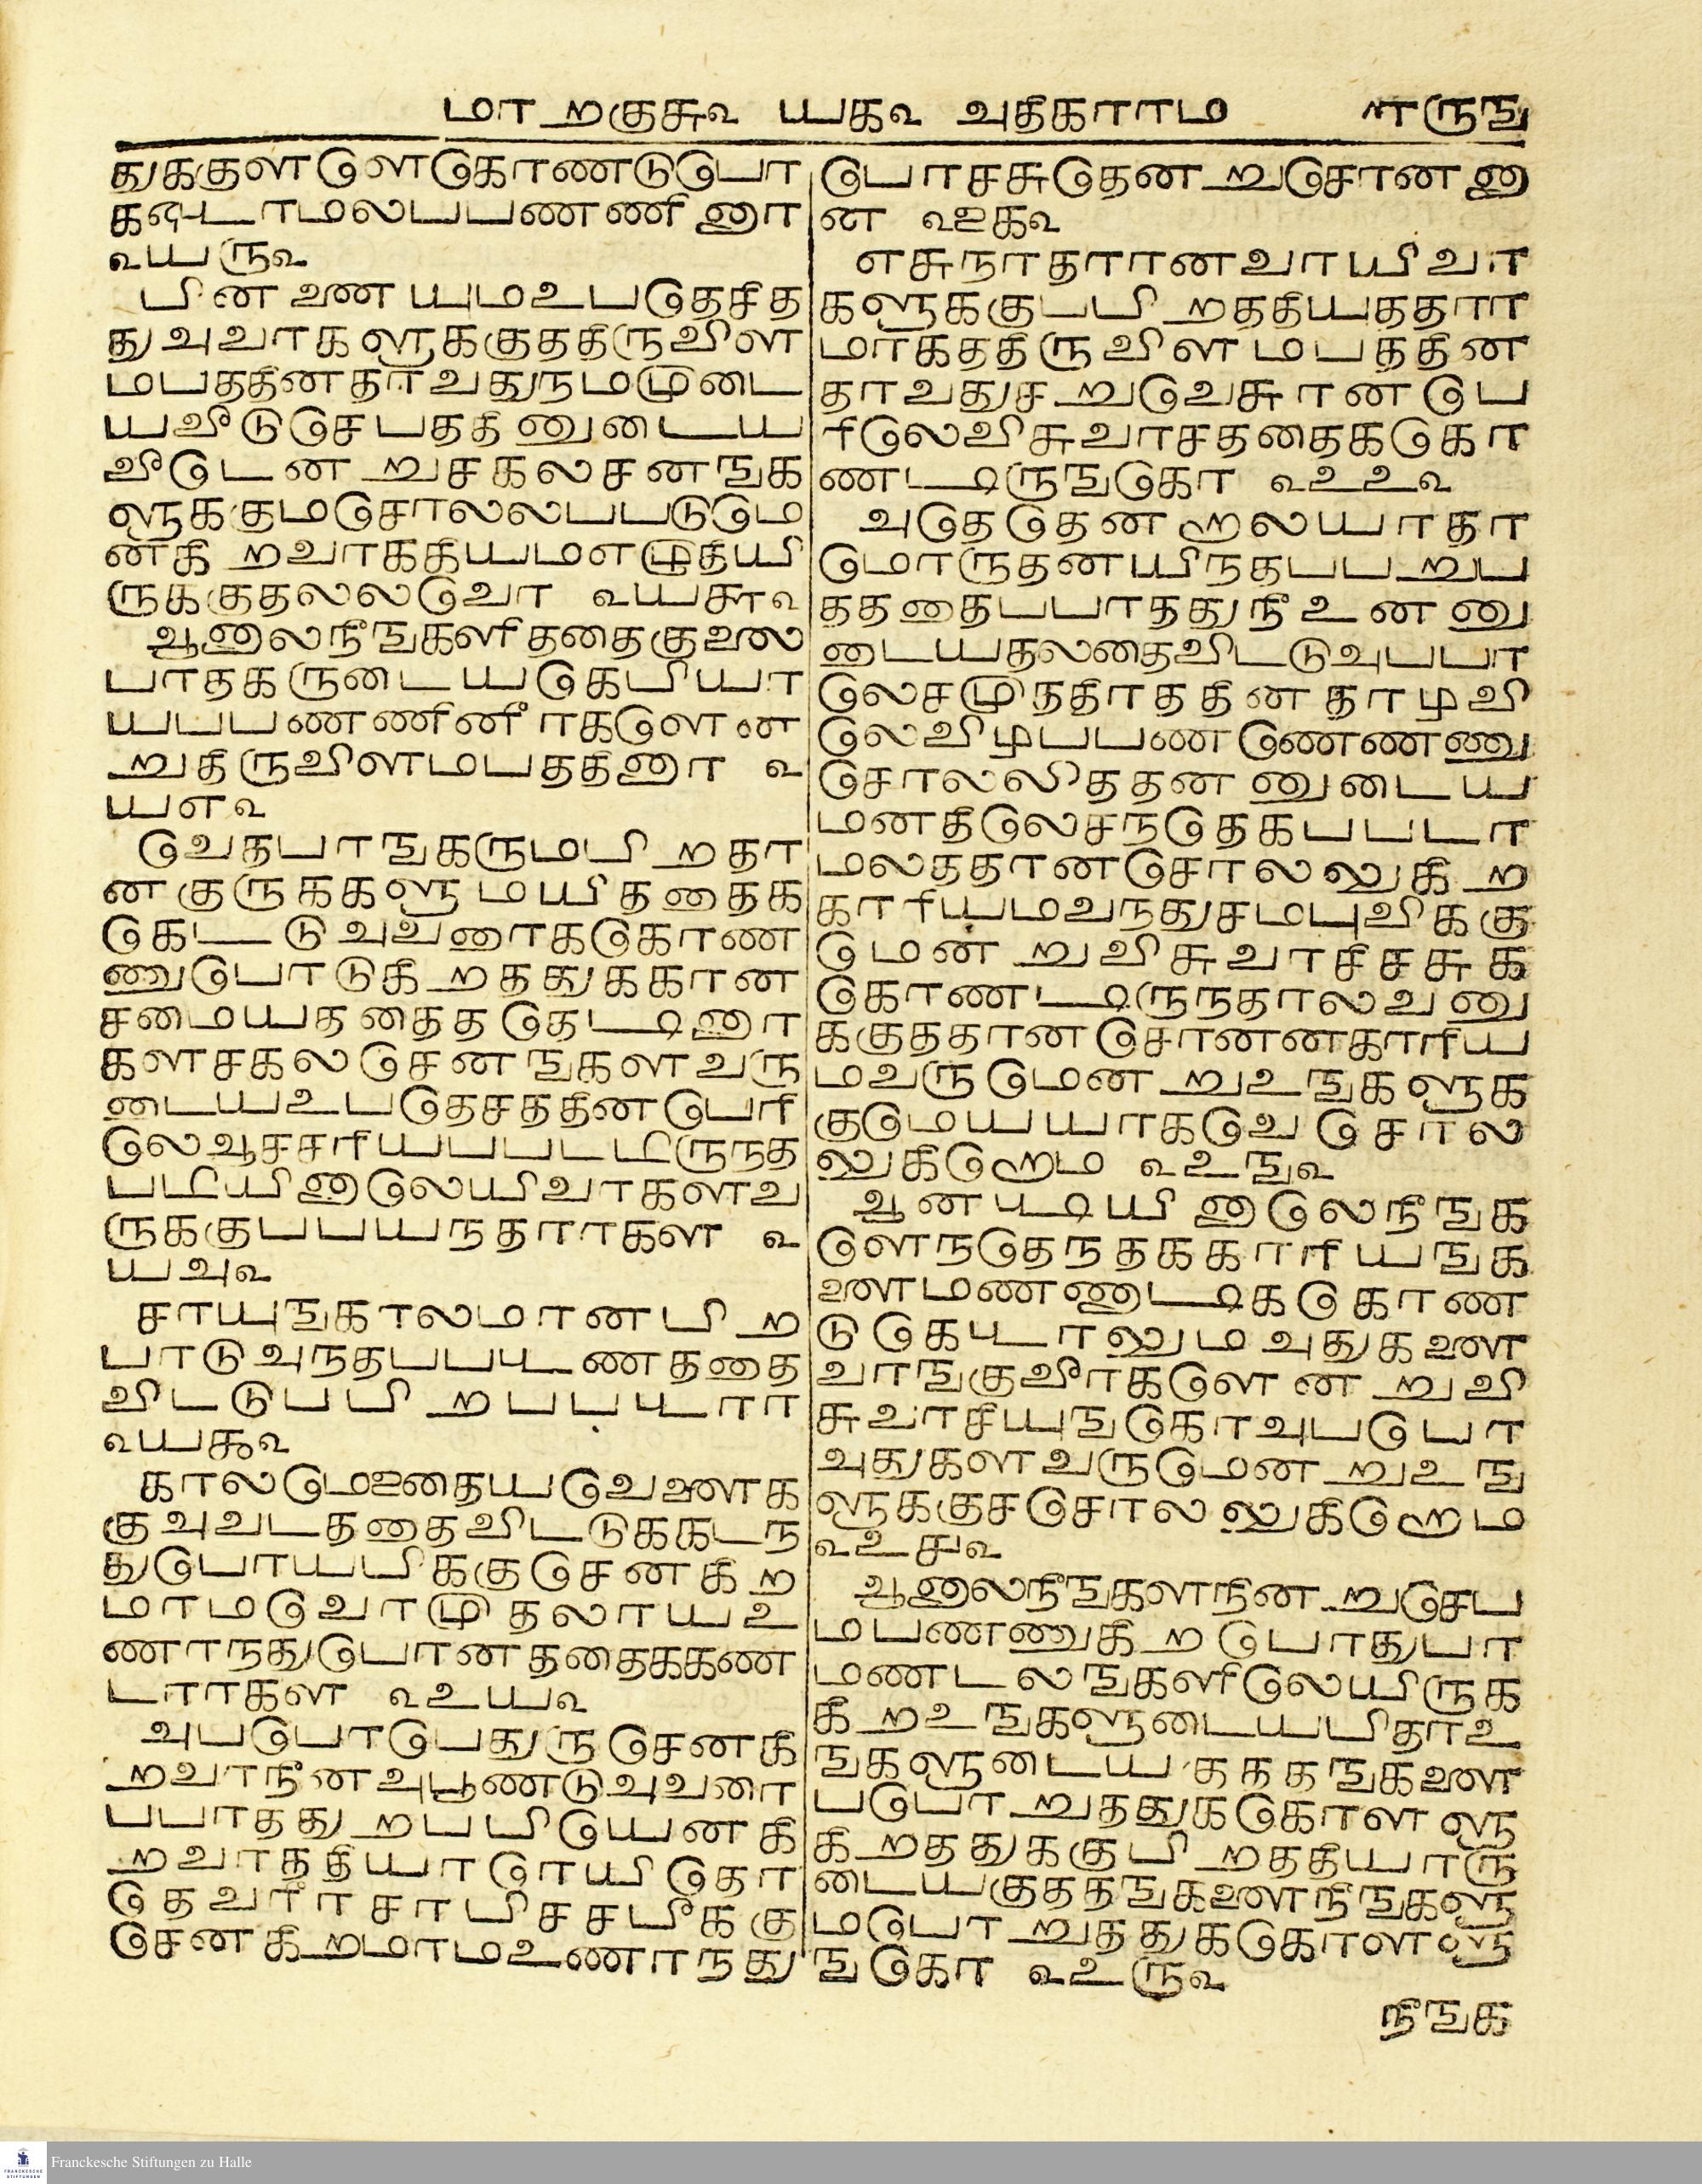 மாறகுசு௨ ௰க௨ அதிகாரம ௱௫௩
துககுளளெகொணடுபொ
கஒடடாமலபபணணினார
௨௰௫௨
பினனையும உபதெசித
துஅவரகளுககுததிருவிள
மபததினதாவதுநமமுடை
யவீடுசெபததினுடைய
வீடென றுசகலசனஙக
ளுககுமசொலலபபடுமெ
னகி றவாககியமஎழுதியி
ருககுதலலவொ ௨௰௬௨
ஆனாலநீஙகளிததைகுலை
பாதகருடையகெபியா
யபபணணினீரகளென
றுதிருவிளமபததினார ௨
௰௭௨
வெதபாரஙகருமபிறதா
னகுருககளுமயிததைக
கெடடுஅவனைரககொண
ணுபொடுகிறததுககான
சமையததைததெடினார
களசகலசெனஙகளஅவரு
டையஉபதெசததினபெரி
லெஆசசரியபபடடிருநத
படியினாலெயிவரகளஅவ
ருககுபபயநதாரகள ௨
௰௮௨
சாயுஙகாலமானபிற
பாடுஅநதபபடடணததை
விடடுபபிறபபடடார
௨௰௯௨
காலமெஉதையவெளைக
குஅவவடததைவிடடுககடந
துபொயயிககுசெனகிற
மாமரவெரமுதலாயஉ
ணரநதுபொனததைககண
டாரகள ௨௨௰௨
அபபொபெதுருசெனகி
றவரநினஅபூணடுஅவரை
பபாதது றபபியெயனகி
றவாததியாரெயிதொ
தெவரீரசாபிசசபீககு
செனகிறமரமஉணரநது
பொசசுதென றுசொனனா
ன ௨௨௧௨
எசுநாதரானவரயிவர
களுககுபபி றததியததார
மாகததிருவிளமபததின
தாவதுச றுவெசுரனபெ
ரிலெவிசுவாசததைககொ
ணடிருஙகொ ௨௨௨௨
அதெதெனறாலயாதா
மொருதனயிநதபப றுப
தததைபபாததுநீஉனனு
டையதலதைவிடடுஅபபா
லெசமுநதிரததினதாழவி
லெவிழபபணணெணணு
சொலலிததனனுடைய
மனதிலெசநதெகபபடா
மலததானசொலலுகிற
காரியமவநதுசமபுவிககு
மென றுவிசுவாசிசசுக
கொணடிருநதாலஅவனு
ககுததானசொனனகாரிய
மவருமென றுஉஙகளுக
குமெயயாகவெசொல
லுகிறெம ௨௨௩௨
ஆனபடியினாலெநீஙக
ளெநதெநதககாரியஙக
ளைமணணாடிககொண
டுகெடடாலுமஅதுகளை
வாஙகுவீரகளென றுவி
சுவாசியுஙகொஅபபொ
அதுகளவருமென றுஉங
ளுககுசசொலலுகிறெம
௨௨௪௨
ஆனாலநீஙகளநின றுசெப
மபணணுகிறபொதுபர
மணடலஙகளிலெயிருக
கிறஉஙகளுடையபிதாஉ
ஙகளுடையகததஙகளை
பபொ றுததுககொளளு
கிறததுககுபி றததியாரு
டையகுததஙகளைநீஙகளு
மபொ றுததுககொளளு
ஙகொ ௨௨௫௨
நீஙக
Franckesche Stiftungen zu Halle
FRANCKESCHE
STIFTUNGEN